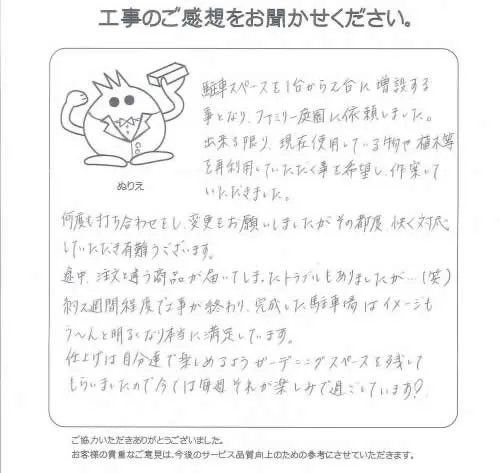 工事のご感想をお聞かせください。
駐車スペースを1台から2台に増設する
事となり、ファミリー庭園に依頼しました。
出来る限り、現在使用している物や植木等
を再利用していただく事を希望し、作案して
いただきました。
ぬりえ
何度も打ち合わせをし、変更をお願いしましたがその都度、快く対応
していただき有難うございます。
途中、注文と違う商品が届いてしまったトラブルもありましたが…(笑)
約2週間程度で工事が終わり、完成した駐車場はイメージも
う〜んと明るくなり本当に満足しています。
仕上げは自分達で楽しめるようガーデニングスペースを残して
もらいましたので今では毎週それが楽しみで過ごしています♪
ご協力いただきありがとうございました。
お客様の貴重なご意見は、今後のサービス品質向上のための参考にさせていただきます。